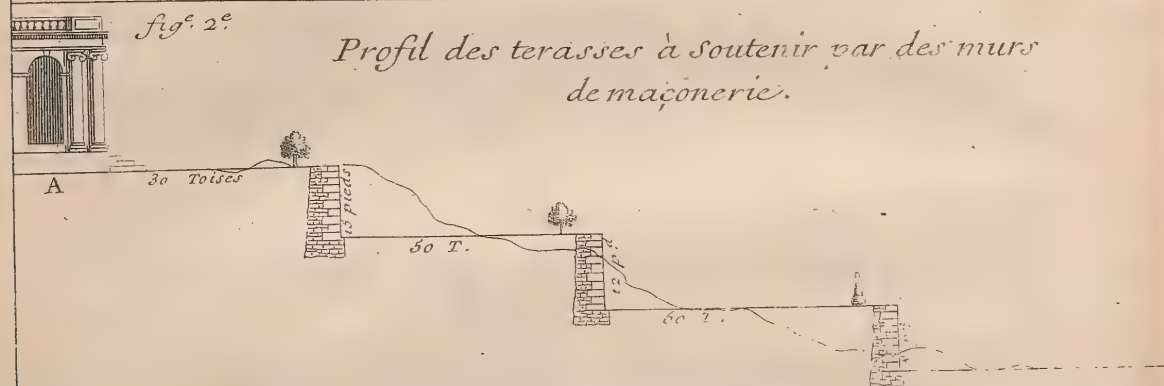 fig.e 2.e
Profil des terasses à Soutenir par des murs
de maçonerie.
A
30 Toises
15 pieds
50 T.
12 p.
60 T.